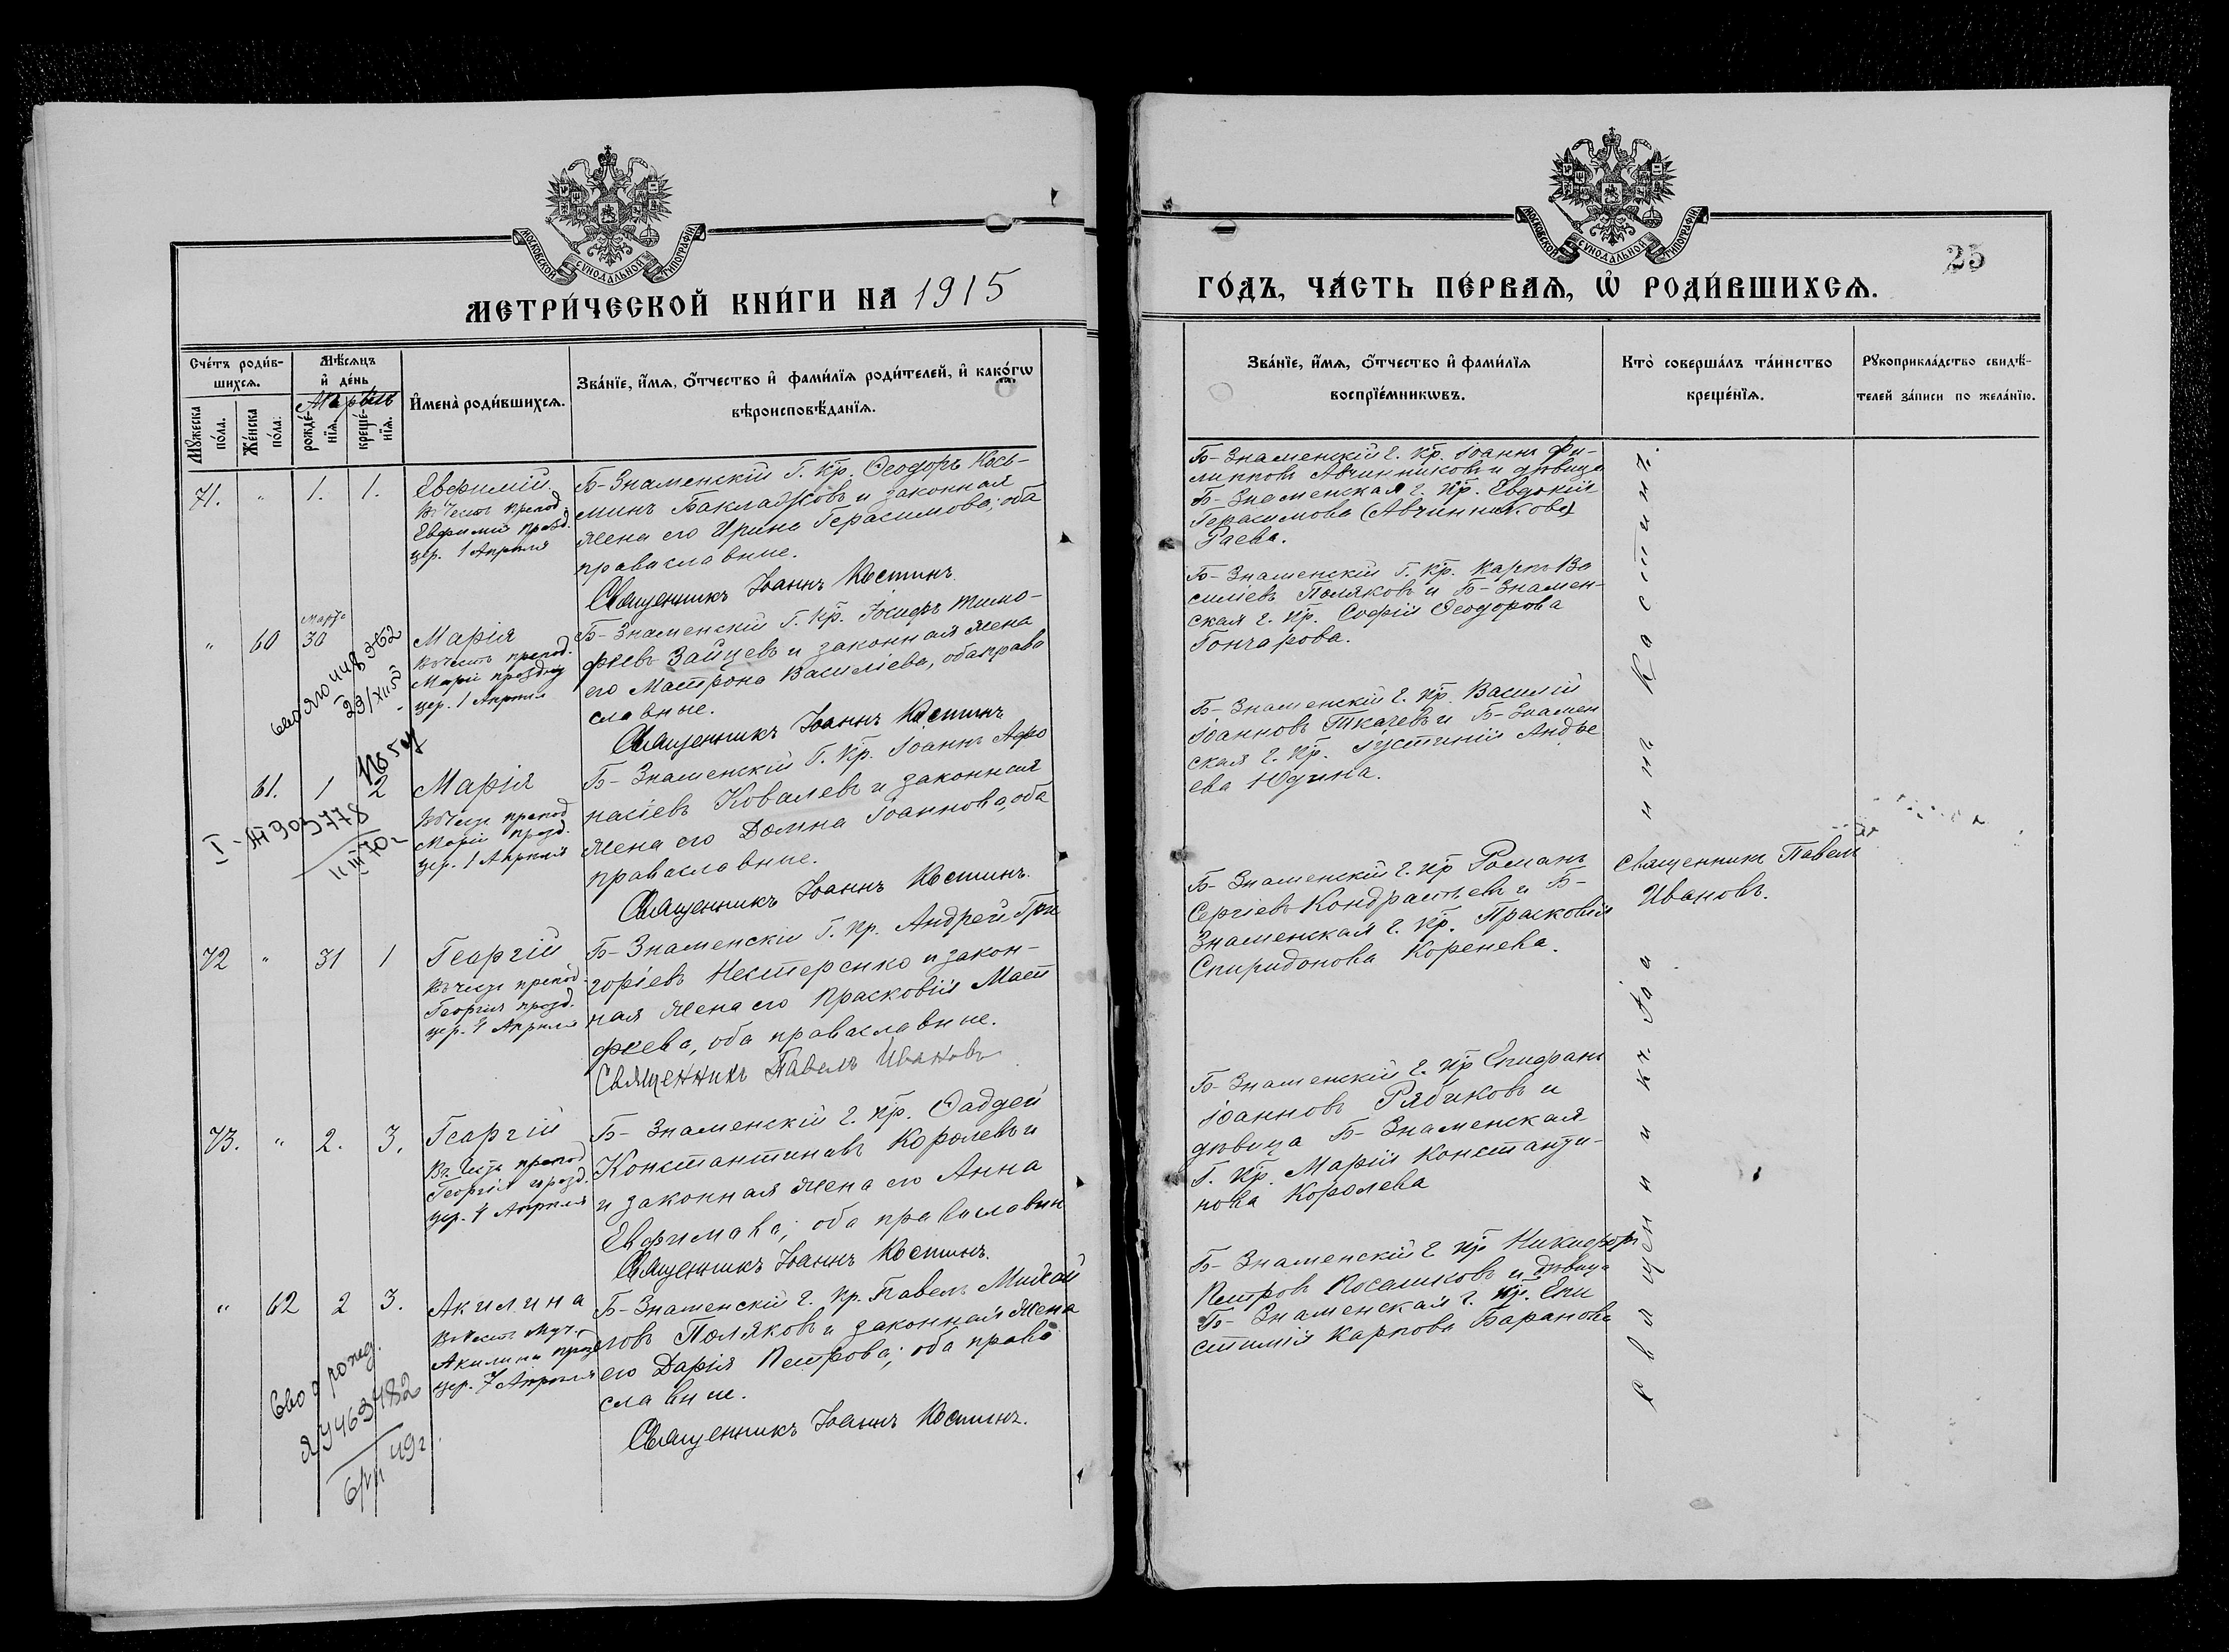 МОСКОВСКОЙ СУНОДАЛЬНОЙ ТИПОГРАФІИ
МЕТРИ́ЧЕСКОЙ КНИ́ГИ НА 1915
Сче́тъ роди́в-
шихсѧ.
Мѣ́сѧцъ
и҆ де́нь
Апрѣль
Мꙋ́жеска
по́ла.
Же́нска
по́ла.
рожде́-
нїѧ.
креще́-
нїѧ.
И҆мена̀ роди́вшихсѧ.
Зва́нїе, и҆́мѧ, ѻ҆́тчество и҆ фами́лїѧ роди́телей, и҆ како́гѡ
вѣроисповѣ́данїѧ.
71. " 1. 1.
Евфимій.
Въ честь препод.
Евфимія празд.
цер. 1 Апрѣля
Б-Знаменскій Г. Кр. Ѳеодоръ Кось-
минъ Баклажовъ и законная
жена его Ирина Герасимова; оба
православные.
Священникъ Іоаннъ Костинъ.
" 60 Марта 30
Марія
Въ честь препод.
Маріи празднуе
цер. 1 Апрѣля
Б-Знаменскій Г. Кр. Іосифъ Тимо-
фѣевъ Зайцевъ и законная жена
его Матрона Василіева, оба право
славные.
Священникъ Іоаннъ Костинъ
29/XII 50
61. 1 2
Марія
Въ честь препод
Маріи празд.
цер. 1 Апрѣля
Б-Знаменскій Г. Кр. Іоаннъ Афо
насіевъ Ковалевъ и законная
жена его Домна Іоаннова, оба
православные.
Священникъ Іоаннъ Костинъ.
I-III 903778
11 III 70 г
72 " 31 1
Георгій
Въ честь препод.
Георгія празд.
цер. 4 Апрѣля
Б-Знаменскій Г. Кр. Андрей Гри
горіевъ Нестеренко и закон-
ная жена его Прасковія Мат
фѣева, оба православные.
Священникъ Павелъ Ивановъ
73. " 2. 3.
Георгій
Въ честь препод
Георгія празд.
цер. 4 Апрѣля
Б-Знаменскій г. Кр. Ѳаддей
Константиновъ Королевъ и
и законная жена его Анна
Евфимова; оба православны
Священникъ Іоаннъ Костинъ.
" 62 2 3.
Акилина
Въ честь муч.
Акилины празд
цер. 7 Апрѣля
Б-Знаменскій г. Кр. Павелъ Михаи
ловъ Поляковъ и законная жена
его Дарія Петрова; оба право
славные.
Священникъ Іоаннъ Костинъ.
Свод рожд.
463482
49 г.
МОСКОВСКОЙ СУНОДАЛЬНОЙ ТИПОГРАФІИ
25
ГО́ДЪ, ЧА́СТЬ ПЕ́РВАѦ, Ѡ҆ РОДИ́ВШИХСѦ.
Зва́нїе, и҆́мѧ, ѻ҆́тчество и҆ фами́лїѧ
воспрїе́мникѡвъ.
Кто̀ соверша́лъ та́инство
креще́нїѧ.
Рꙋкоприкла́дство свидѣ́-
телей за́писи по жела́нїю.
Б-Знаменскій г. Кр. Іоаннъ Фи-
липповъ Авчинниковъ и дѣвица
Б-Знаменская г. Кр. Евдокія
Герасимова (Авчинникова)
Раева.
Б-Знаменскій Г. Кр. Карпъ Ва
силіевъ Поляковъ и Б-Знамен-
ская г. Кр. Софія Ѳеодорова
Гончарова.
Б-Знаменскій г. Кр. Василій
Іоанновъ Ткачевъ и Б-Знамен
ская г. Кр. Іустинія Андре
ева Юдина.
Б-Знаменскій г. Кр Романъ
Сергіевъ Кондратьевъ и Б-
Знаменская г. Кр. Прасковія
Спиридонова Коренева.
Священникъ Павелъ
Ивановъ.
Б-Знаменскій г. Кр Епифанъ
Іоанновъ Рябиковъ и
дѣвица Б-Знаменская
Г. Кр. Марія Константи-
нова Королева
Б-Знаменскій г Кр Никифоръ
Петровъ Посашковъ и дѣвица
Б-Знаменская г. Кр. Епи
стимія Карпова Баранова
Священникъ Іоаннъ Костинъ.